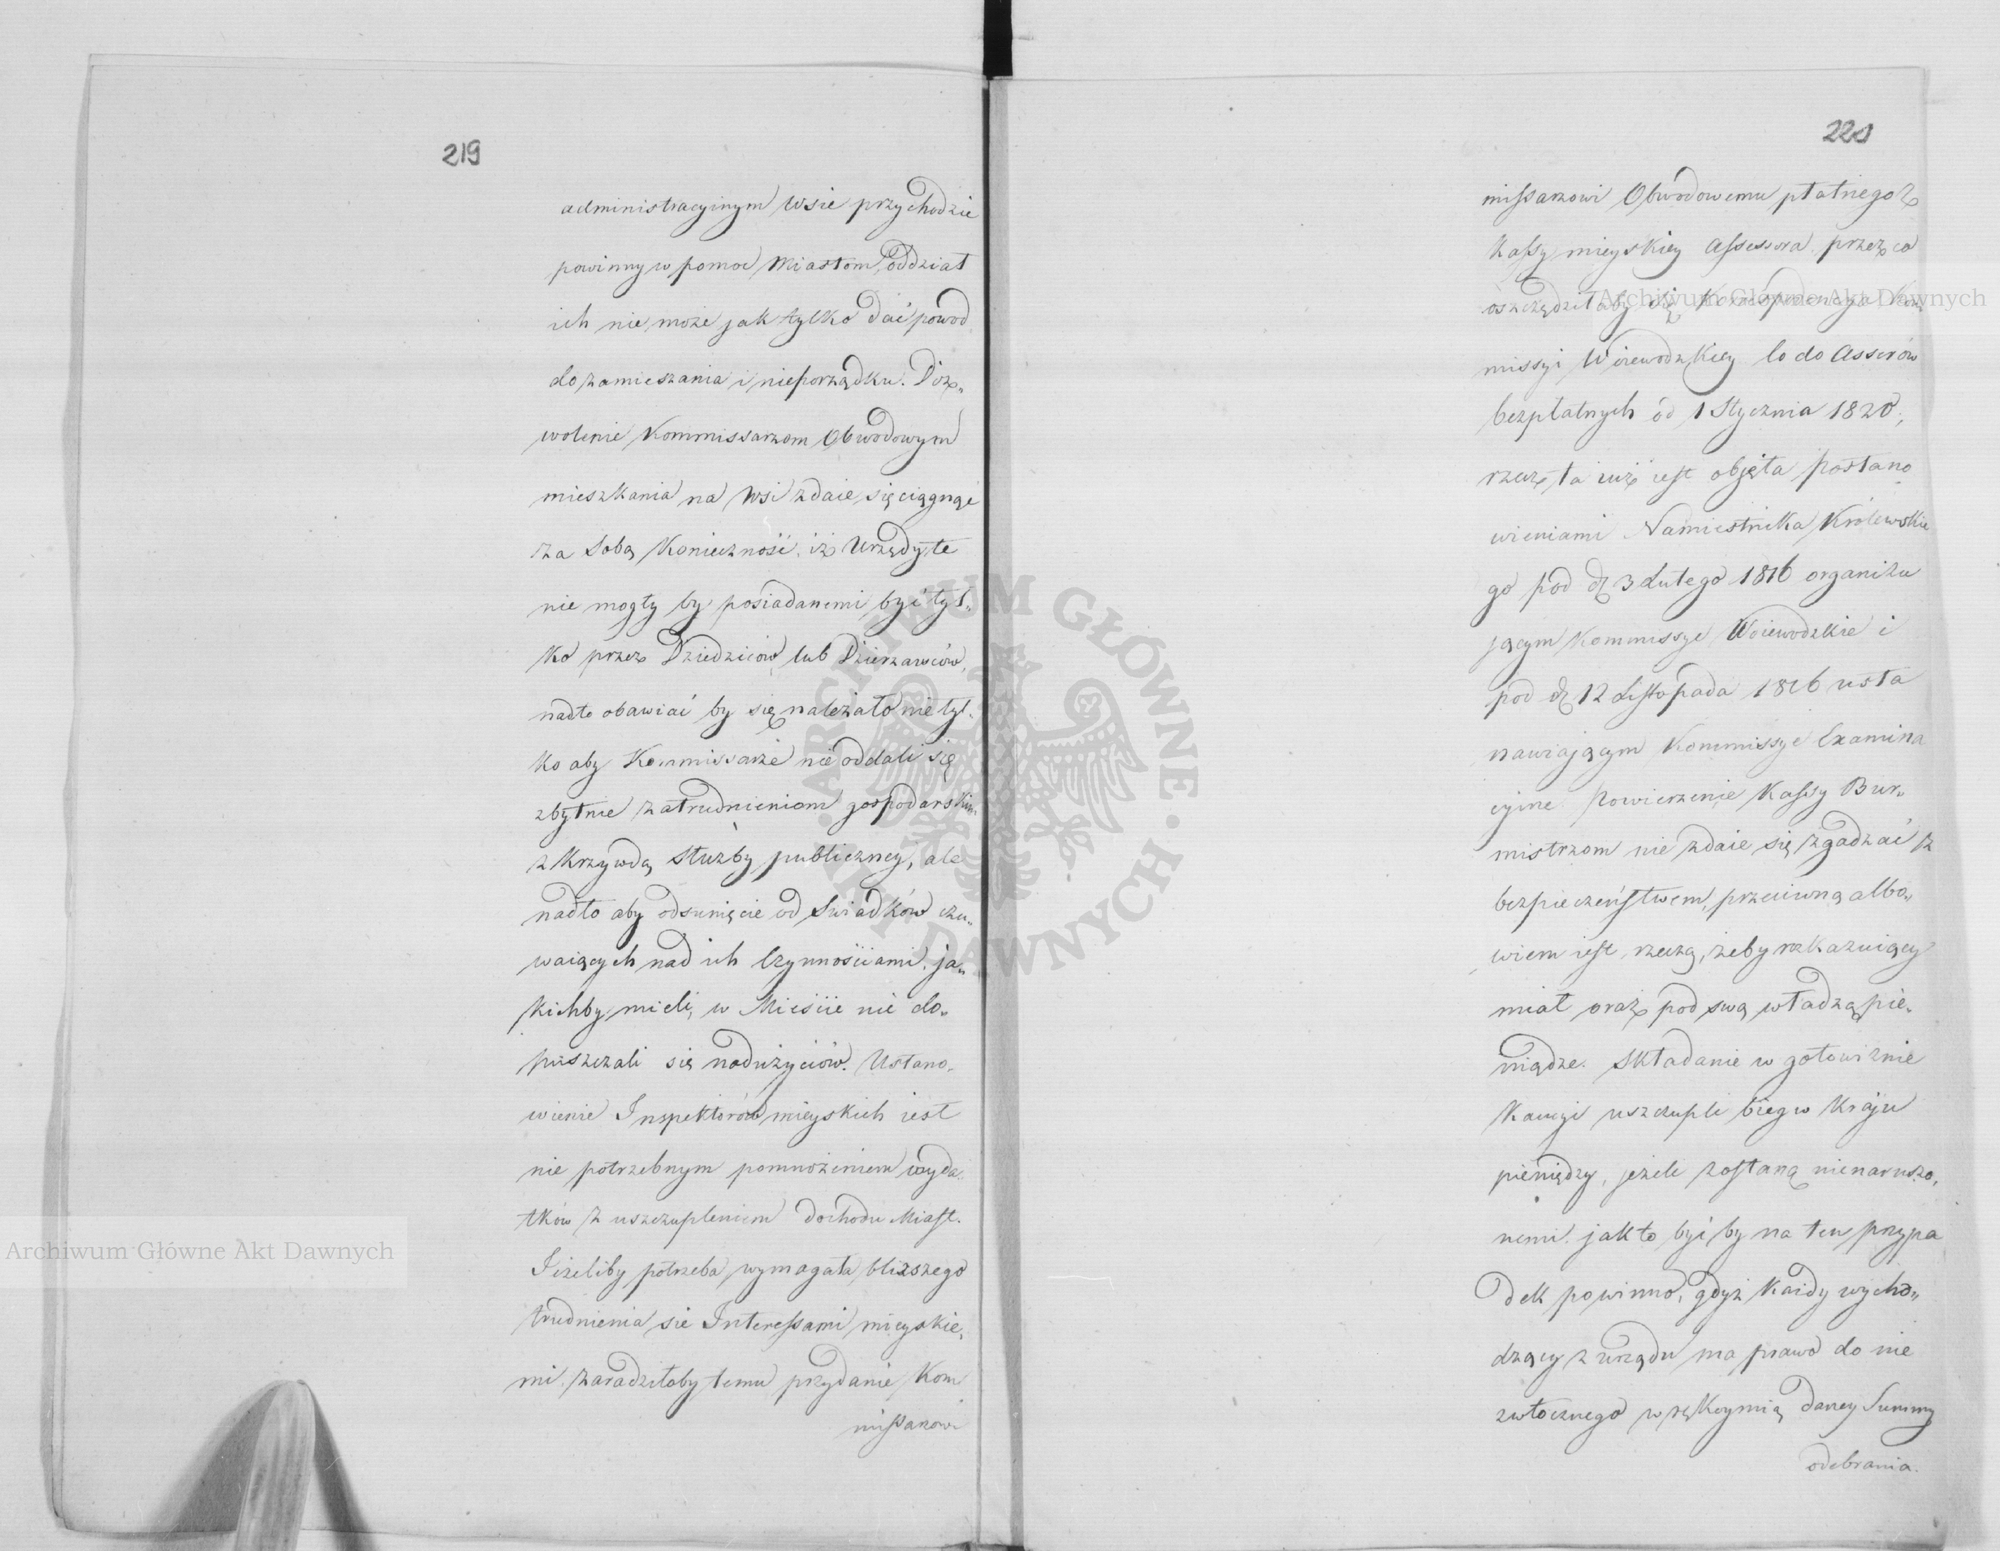 219
administracyinym Wsie przychodzie
powinny w pomoc Miastom, oddział
ich nie może jak tylko dać powod
do zamieszania i nieporządku. Poz„
wolenie Kommissarzom Obwodowym
mieszkania na Wsi zdaie się ciągnąć
za sobą konieczność, iż Urzędy te
nie mogły by posiadanemi być tyl„
ko przez Dziedziców lub Dzierzawców,
nadto obawiać by się należało nie tyl„
ko aby Kommissarze nie oddali się
zbytnie zatrudnieniom gospodarskim
z krzywdą służby publiczney, ale
nadto aby odsunięcie od Swiadków czu„
waiących nad ich Czynnościami, ja„
kichby mieli, w Mieście nie do„
puszczali się nadużyciów. Ustano„
wienie Inspektorów mieyskich iest
nie potrzebnym pomnożeniem wyda„
tków z uszczupleniem dochodu Miast.
Jeżeliby potrzeba wymagała bliższego
trudnienia sie Interessami mieyskie„
mi, zaradziłoby temu przydanie Kom
missarzowi
220
missarzowi Obwodowemu płatnego z
Kassy mieyskiey Assessora. przez co
oszczędziłaby się Korrespondencya Kom
missyi Woiewodzkiey
bezpłatnych od 1 Stycznia 1820,
rzecz ta iuż iest objęta postano
wieniami Namiestnika Królewskie
go pod d. 3 Lutego 1816 organizu
jącym Kommissye Woiewodzkie i
pod d. 12 Listopada 1816 usta
nawiającym Kommissye Examina
cyine. Powierzenie Kassy Bur„
mistrzom nie zdaie się zgadzać z
bezpieczeństwem, przeciwną albo„
wiem iest rzeczą, żeby rozkazuiący
miał oraz pod swą władzą pie„
niądze. Składanie w gotowiźnie
Kaucyi uszczupli bieg w Kraju
pieniędzy, jeżeli zostaną nienaruszo„
nemi, jak to być by na ten przypa
dek powinno, gdyż każdy wycho„
dzący z urzędu ma prawo do nie
zwłocznego w rękoymią daney Summy
odebrania.
Archiwum Główne Akt Dawnych
Archiwum Główne Akt Dawnych
ARCHIWUM GŁÓWNE · AKT DAWNYCH ·